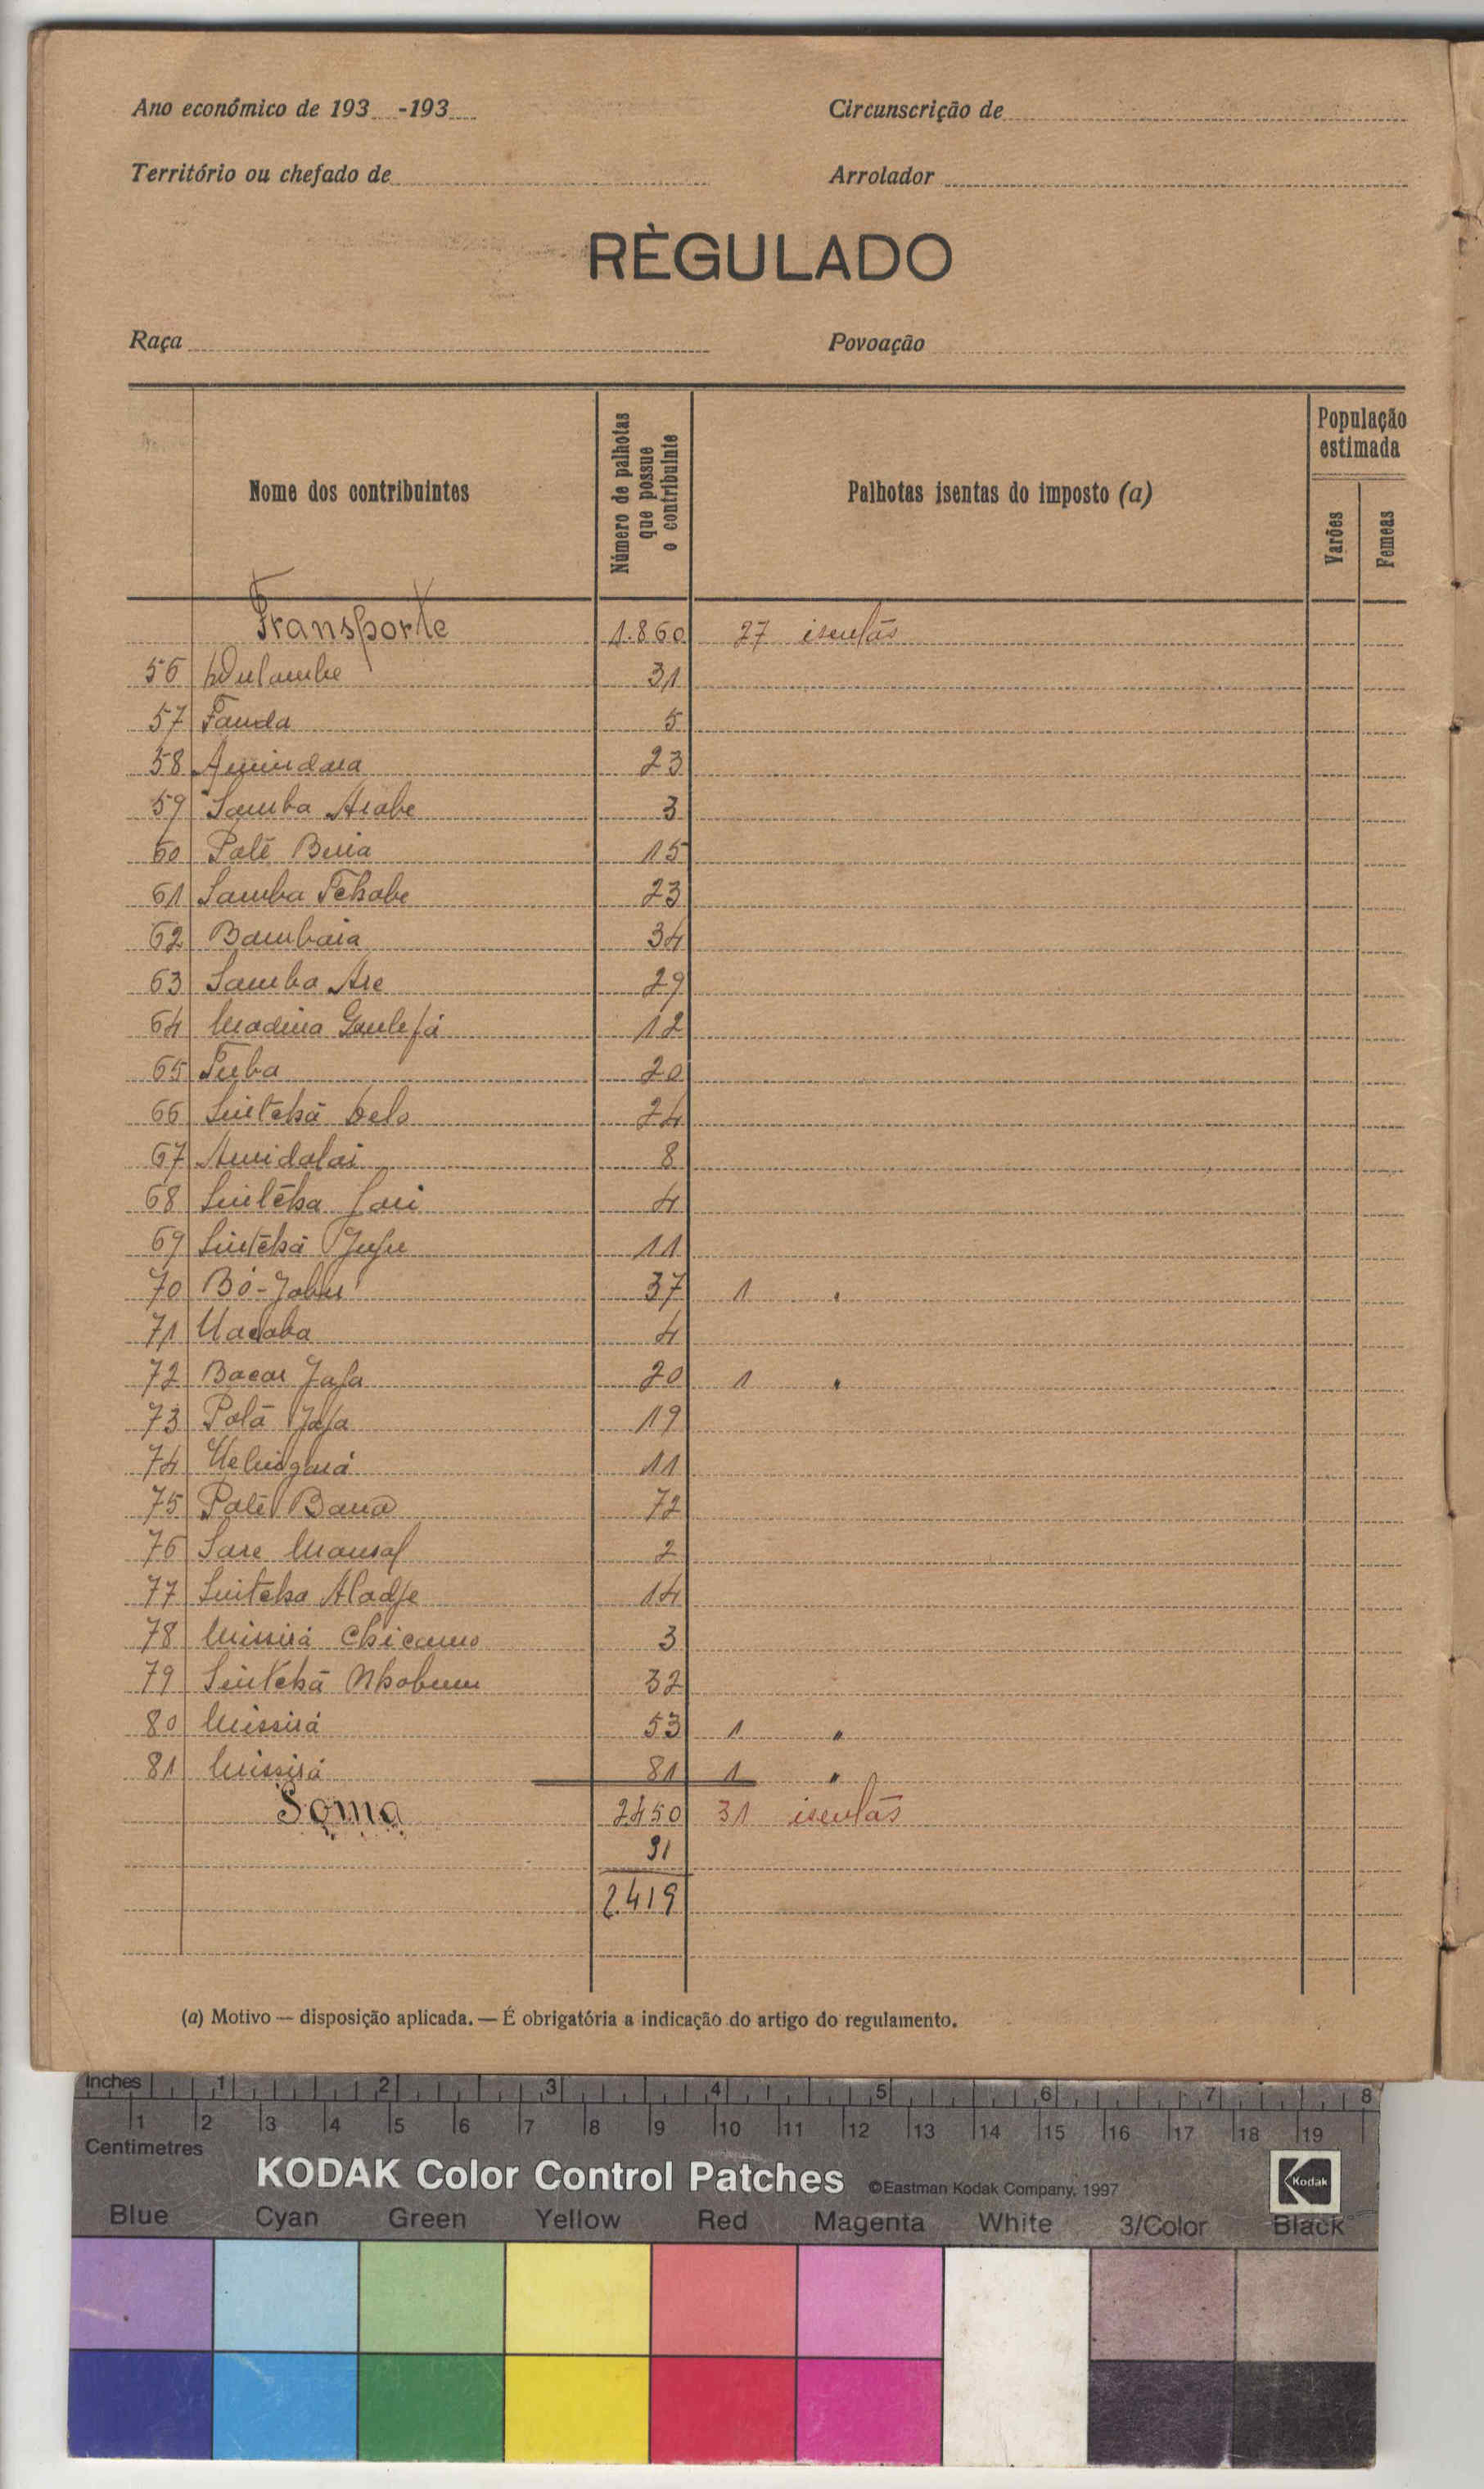 Ano económico de 193 -193
Circunscrição de
Território ou chefado de
Arrolador
RÈGULADO
Raça
Povoação
Nome dos contribuintes
Número de palhotas que possue o contribuinte
Palhotas isentas do imposto (a)
População estimada
Varões
Femeas
Transporte 1.860 27 isentas
56 31
57 Tanda 5
58 Amindara 23
59 Samba Arabe 3
60 Patê Buia 15
61 Samba Tchobe 23
62 Bambaia 34
63 Samba Are 29
64 Madina 12
65 Tuba 20
66 Sintchã 24
67 Amidalai 8
68 Sintcha Jari 4
69 Sintchã Jufu 11
70 Bó-Jobu 37 1 "
71 Uacaba 4
72 Bacar Jafa 20 1 "
73 Polã Jafa 19
74 11
75 Patê Bana 72
76 Sare Mansaf 2
77 Sintcha Aladje 14
78 Missirá Chicamo 3
79 Sintchã Nhobum 32
80 Missirá 53 1 "
81 Missirá 81 1 "
Soma 2450 31 isentas
31
2.419
(a) Motivo — disposição aplicada. — É obrigatória a indicação do artigo do regulamento.
Inches 1 2 3 4 5 6 7 8
1 2 3 4 5 6 7 8 9 10 11 12 13 14 15 16 17 18 19
Centimetres
KODAK Color Control Patches ©Eastman Kodak Company, 1997 Kodak
Blue Cyan Green Yellow Red Magenta White 3/Color Black